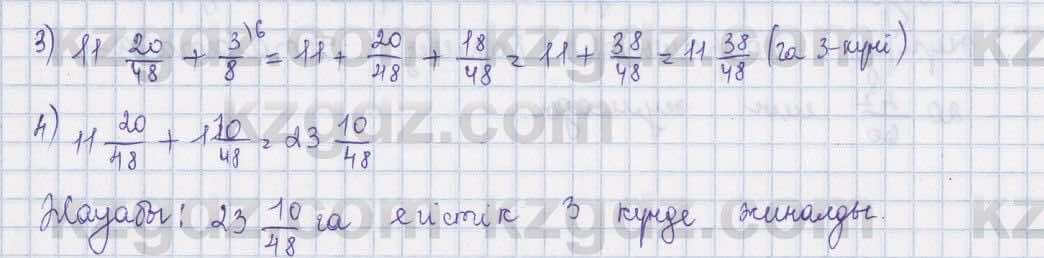 3) 11 20/48 + 3/8 )6 = 11 + 20/48 + 18/48 = 11 + 38/48 = 11 38/48 (га 3-күні)
4) 11 20/48 + 11 10/48 = 23 10/48
Жауабы: 23 10/48 га егістік 3 күнде жиналды.
kzgdz.com